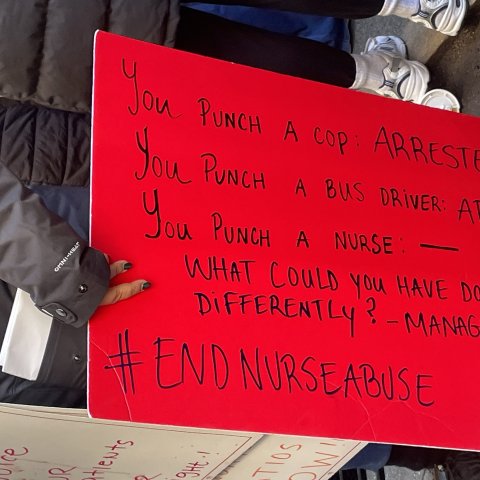 You PUNCH A COP: ARRESTE
You PUNCH A BUS DRIVER: AR
You PUNCH A NURSE: —
WHAT COULD you HAVE DO
DIFFERENTLY? - MANAG
#END NURSE ABUSE
OMNI-HEAT
OICE
UR
PATIENTS
R
IGHT!
ATIOS
OW!